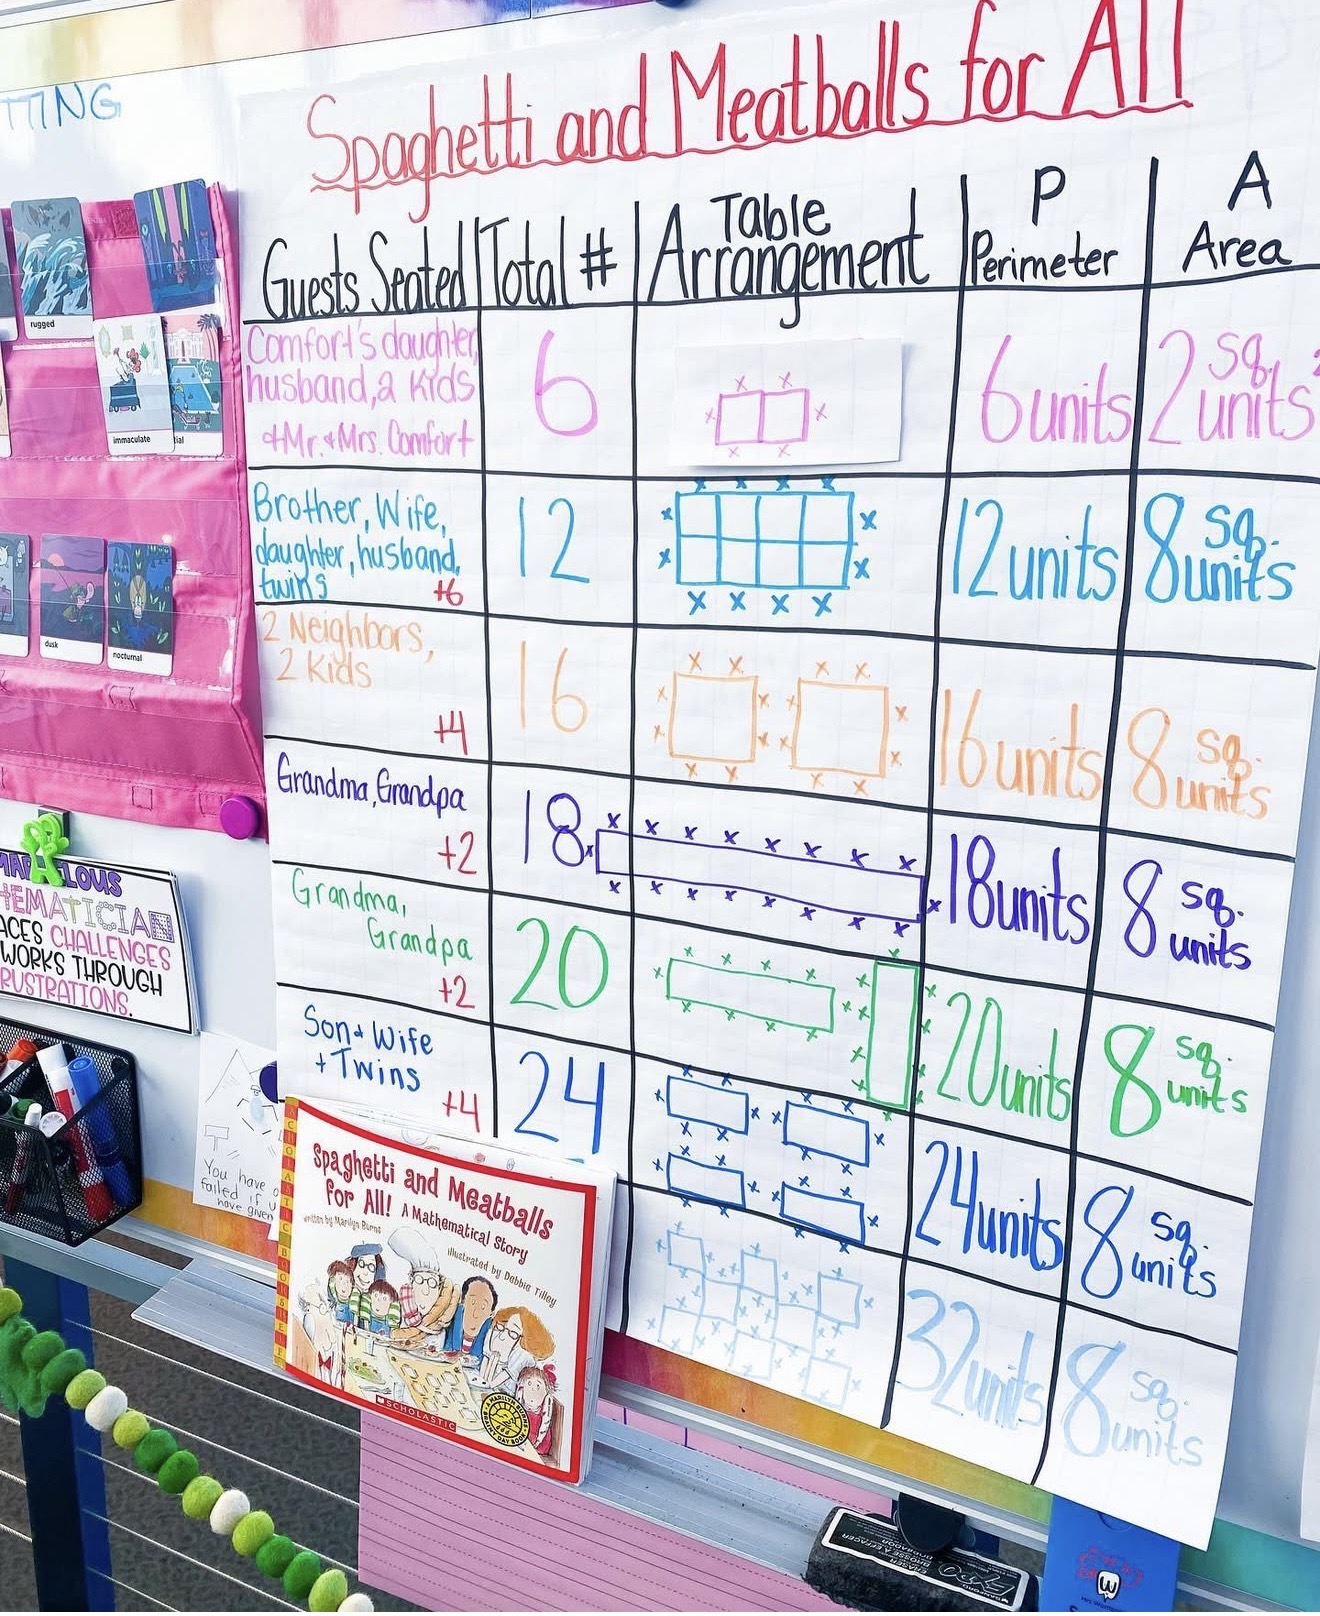 TTING
Spaghetti and Meatballs for All
Guests Seated
Total #
Table
Arrangement
P
Perimeter
A
Area
Comfort's daughter,
husband, 2 kids
+Mr. + Mrs. Comfort
6
6 units
2 sq.
units
Brother, Wife,
daughter, husband,
twins
+6
12
12 units
8 sq.
units
2 Neighbors,
2 kids
+4
16
16 units
8 sq.
units
Grandma, Grandpa
+2
18
18 units
8 sq.
units
Grandma,
Grandpa
+2
20
20 units
8 sq.
units
Son + Wife
+ Twins
+4
24
24 units
8 sq.
units
32 units
8 sq.
units
rugged
immaculate
ial
dusk
nocturnal
LOUS
EMATICIAN
ACES CHALLENGES
WORKS THROUGH
RUSTRATIONS.
You have
failed if
have given
SCHOLASTIC BOOKSHELF
Spaghetti and Meatballs
for All! A Mathematical Story
written by Marilyn Burns
illustrated by Debbie Tilley
SCHOLASTIC
A MARILYN BURNS
EXPO
W